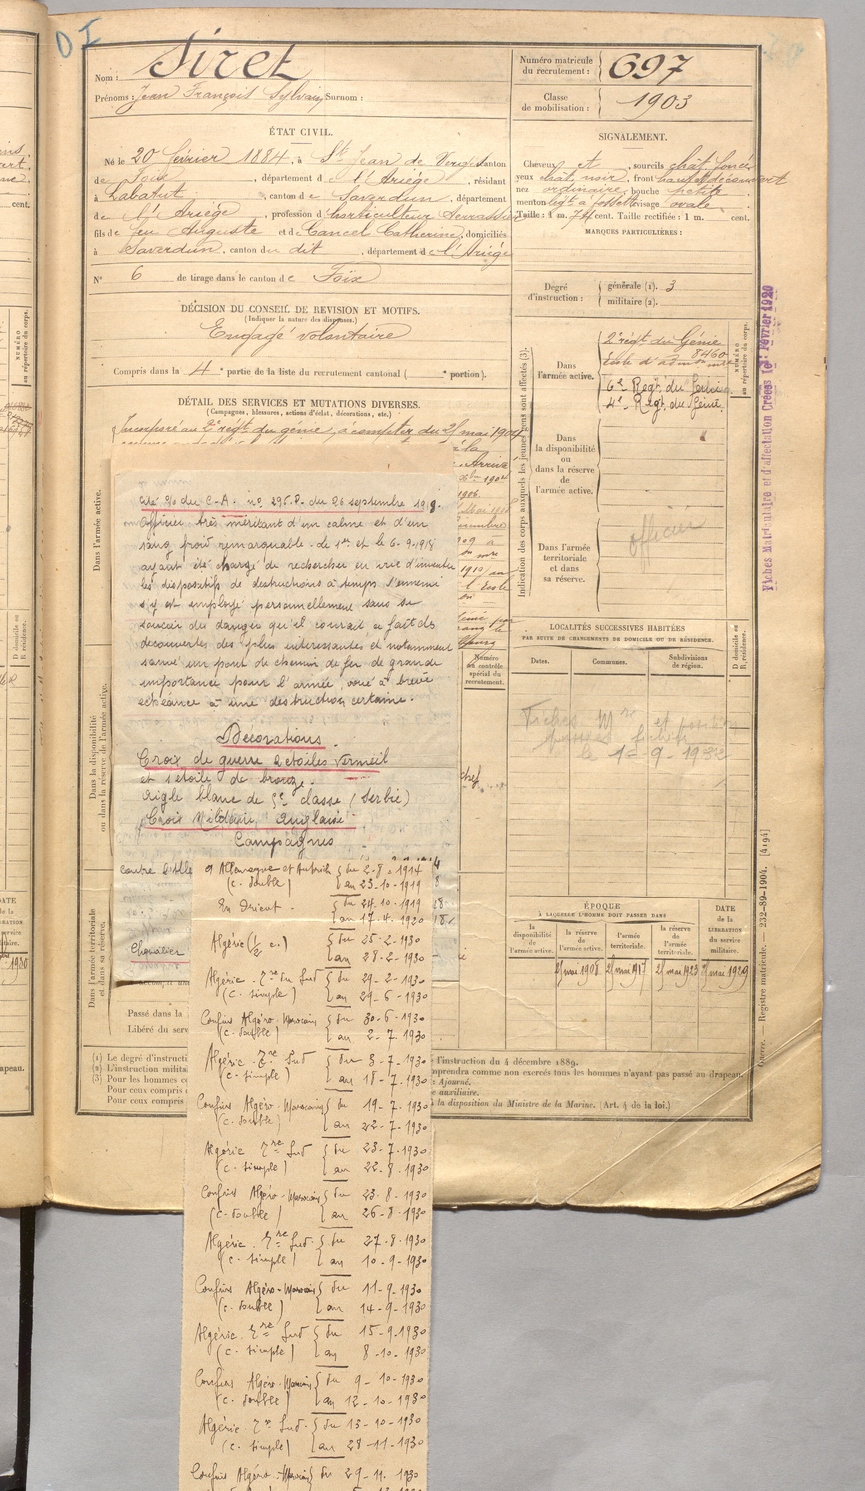 DI
Nom : Siret
Prénoms : Jean François Sylvain Surnom :
Numéro matricule du recrutement : 697
Classe de mobilisation : 1903
ÉTAT CIVIL.
Né le 20 février 1884, à St Jean de Verges canton
de Foix, département de l'Ariége, résidant
à Labatut, canton de Saverdun, département
de l'Ariége, profession d'horticulteur Serrassier
fils de feu Auguste et de Cancel Catherine, domiciliés
à Saverdun, canton du dit, département de l'Ariége
N° 6 de tirage dans le canton de Foix
SIGNALEMENT.
Cheveux et, sourcils chât. foncé
yeux chat. noir, front haut et découvert
nez ordinaire, bouche petite
menton légt à fossette visage ovale
Taille : 1 m. 74 cent. Taille rectifiée : 1 m. cent.
MARQUES PARTICULIÈRES :
Degré d'instruction : générale (1). 3
militaire (2).
DÉCISION DU CONSEIL DE REVISION ET MOTIFS.
(Indiquer la nature des dispenses.)
Engagé volontaire
Compris dans la 4e partie de la liste du recrutement cantonal ( portion).
DÉTAIL DES SERVICES ET MUTATIONS DIVERSES.
(Campagnes, blessures, actions d'éclat, décorations, etc.)
Incorporé au 2e régt du génie, à compter du 25 mai 1904
Indication des corps auxquels les jeunes gens sont affectés (3).
NUMÉRO au répertoire du corps.
Dans l'armée active.
2e régt du Génie
8460
6e Regt. du Génie.
4e Regt. du Génie.
Dans la disponibilité ou dans la réserve de l'armée active.
Dans l'armée territoriale et dans sa réserve.
officier
Fiches Matriculaire et d'affectation Créées le 1er Février 1920
LOCALITÉS SUCCESSIVES HABITÉES
PAR SUITE DE CHANGEMENTS DE DOMICILE OU DE RÉSIDENCE.
Dates. Communes. Subdivisions de région. D domicile ou R. résidence.
Fiches Mre et position
le 1 - 9 - 1932
ÉPOQUE
À LAQUELLE L'HOMME DOIT PASSER DANS
la disponibilité de l'armée active. la réserve de l'armée active. l'armée territoriale. la réserve de l'armée territoriale.
DATE de la LIBÉRATION du service militaire.
25 mai 1908 25 mai 1917 25 mai 1923 25 mai 1929
Guerre. — Registre matricule. — 232-89-1904. [4194]
Dans l'armée active.
Dans la disponibilité ou dans la réserve de l'armée active.
Dans l'armée territoriale et dans sa réserve.
Numéro au contrôle spécial du recrutement.
cité O/ du C-A. no 295.P. du 26 septembre 1918.
Officier très méritant d'un calme et d'un
sang froid remarquable - de 1er et le 6-9-1918
ayant été chargé de rechercher en vue d'inventer
les dispositifs de destructions à temps l'ennemi
s'y est employé personnellement sans se
soucier du danger qu'il courait a fait des
découvertes des plus intéressantes et notamment
sauvé un pont de chemin de fer de grande
importance pour l'armée, voué à brève
échéance à une destruction certaine.
Décorations
Croix de guerre 2 étoiles Vermeil
et 1 étoile de bronze.
Aigle blanc de 5e classe (Serbie)
Croix Militaire Anglaise
Campagnes
contre
Chevalier
et Allemagne et Autriche { du 2-8-1914
(c. double) { au 23-10-1919
En Orient - { du 24-10-1919
{ au 17-4-1920
Algérie (1/2 c.) { du 25-2-1930
{ au 28-2-1930
Algérie - Tre du Sud { du 29-2-1930
(c. simple) { au 29-6-1930
Confins Algéro-Marocains { du 30-6-1930
(c. double) { au 2-7-1930
Algérie Tre Sud { du 3-7-1930
(c. simple) { au 18-7-1930
Confins Algéro-Marocains { du 19-7-1930
(c. double) { au 22-7-1930
Algérie Tre Sud { du 23-7-1930
(c. simple) { au 22-8-1930
Confins Algéro-Marocains { du 23-8-1930
(c. double) { au 26-8-1930
Algérie Tre Sud { du 27-8-1930
(c. simple) { au 10-9-1930
Confins Algéro-Marocains { du 11-9-1930
(c. double) { au 14-9-1930
Algérie Tre Sud { du 15-9-1930
(c. simple) { au 8-10-1930
Confins Algéro-Marocains { du 9-10-1930
(c. double) { au 12-10-1930
Algérie Tre Sud { du 13-10-1930
(c. simple) { au 28-11-1930
Confins Algéro-Marocains { du 29-11-1930
Passé dans la
Libéré du serv
(1) Le degré d'instructi
(2) L'instruction milita
(3) Pour les hommes c
Pour ceux compris
Pour ceux compris
l'instruction du 4 décembre 1889.
mprendra comme non exercés tous les hommes n'ayant pas passé au drapeau.
: Ajourné.
e auxiliaire.
à la disposition du Ministre de la Marine. (Art. 4 de la loi.)